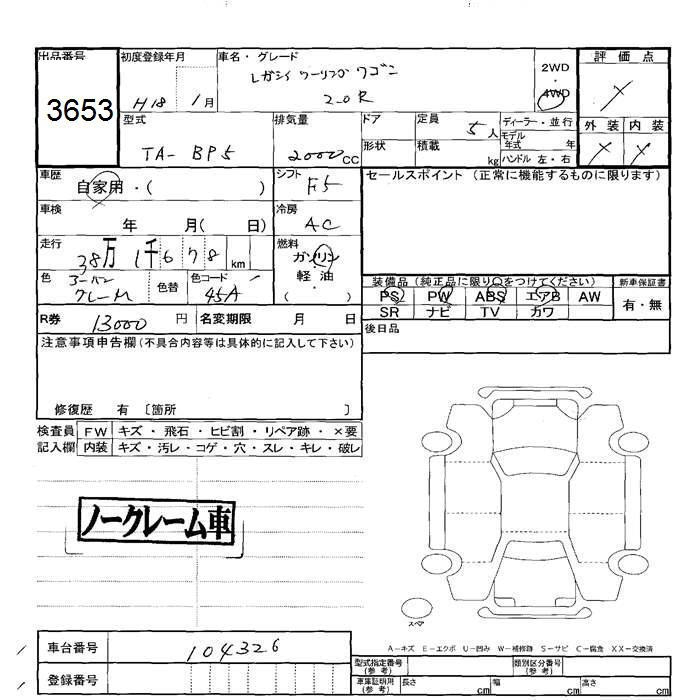 出品番号 初度登録年月 車名・グレード 2WD 評価点
レガシィ ツーリング ワゴン ・
3653 H18 1月 2.0R 4WD ×
型式 排気量 ドア 定員 5人 ディーラー・並行 外装 内装
モデル年式 年
TA- BP5 2000CC 形状 積載 kg ハンドル 左・右 × ×
車歴 シフト セールスポイント (正常に機能するものに限ります)
自家用・( ) F5
車検 冷房
年 月( 日) AC
走行 燃料
38万 1千 6 7 8 km ガソリン
色 色替 色コード 軽油
グレーM 45A ( )
装備品 (純正品に限り○をつけてください) 新車保証書
PS PW ABS エアB AW 有・無
SR ナビ TV カワ
R券 13000 円 名変期限 月 日 後日品
注意事項申告欄(不具合内容等は具体的に記入して下さい)
修復歴 有 〔箇所 〕
検査員 FW キズ・飛石・ヒビ割・リペア跡・×要
記入欄 内装 キズ・汚レ・コゲ・穴・スレ・キレ・破レ
ノークレーム車
スペア
A-キズ E-エクボ U-凹み W-補修跡 S-サビ C-腐食 XX-交換済
車台番号 104326
型式指定番号 (参考) 類別区分番号 (参考)
登録番号 車庫証明用 (参考) 長さ cm 幅 cm 高さ cm